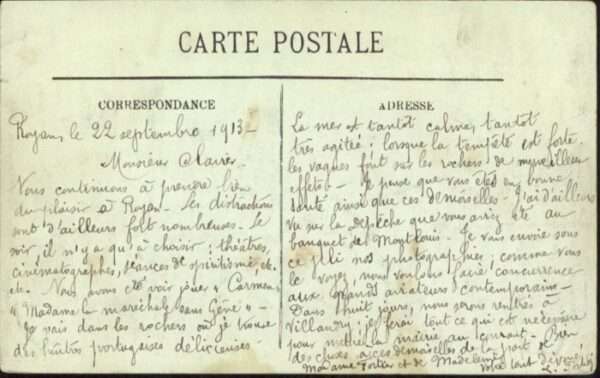 CARTE POSTALE
CORRESPONDANCE
Royan, le 22 septembre 1913 -
Monsieur
Nous continuons à prendre bien
du plaisir à Royan - Les distractions
sont d'ailleurs fort nombreuses. Le
soir il n'y a qu'à choisir ; théâtres,
cinématographes, séances de spiritisme, etc.
etc. Nous avons été voir jouer "Carmen"
"Madame la maréchale sans Gêne" -
Je vais dans les rochers où je trouve
des huîtres portugaises délicieuses -
ADRESSE
La mer est tantôt calme, tantôt
très agitée ; lorsque la tempête est forte
les vagues font sur les rochers de merveilleux
effets - Je pense que vous êtes en bonne
santé ainsi que ces demoiselles - J'ai d'ailleurs
vu sur la Dépêche que vous aviez été au
banquet de Montlouis. Je vais envoie sous
ce pli nos photographies ; comme vous
le voyez, nous voulons faire concurrence
aux grands aviateurs contemporains -
Dans huit jours, nous serons rentrés à
Villandry ; je ferai tout ce qui est nécessaire
pour mettre la mairie au courant - Bien
des choses à ces demoiselles de la part de
Madame et de Madeleine Votre tout dévoué